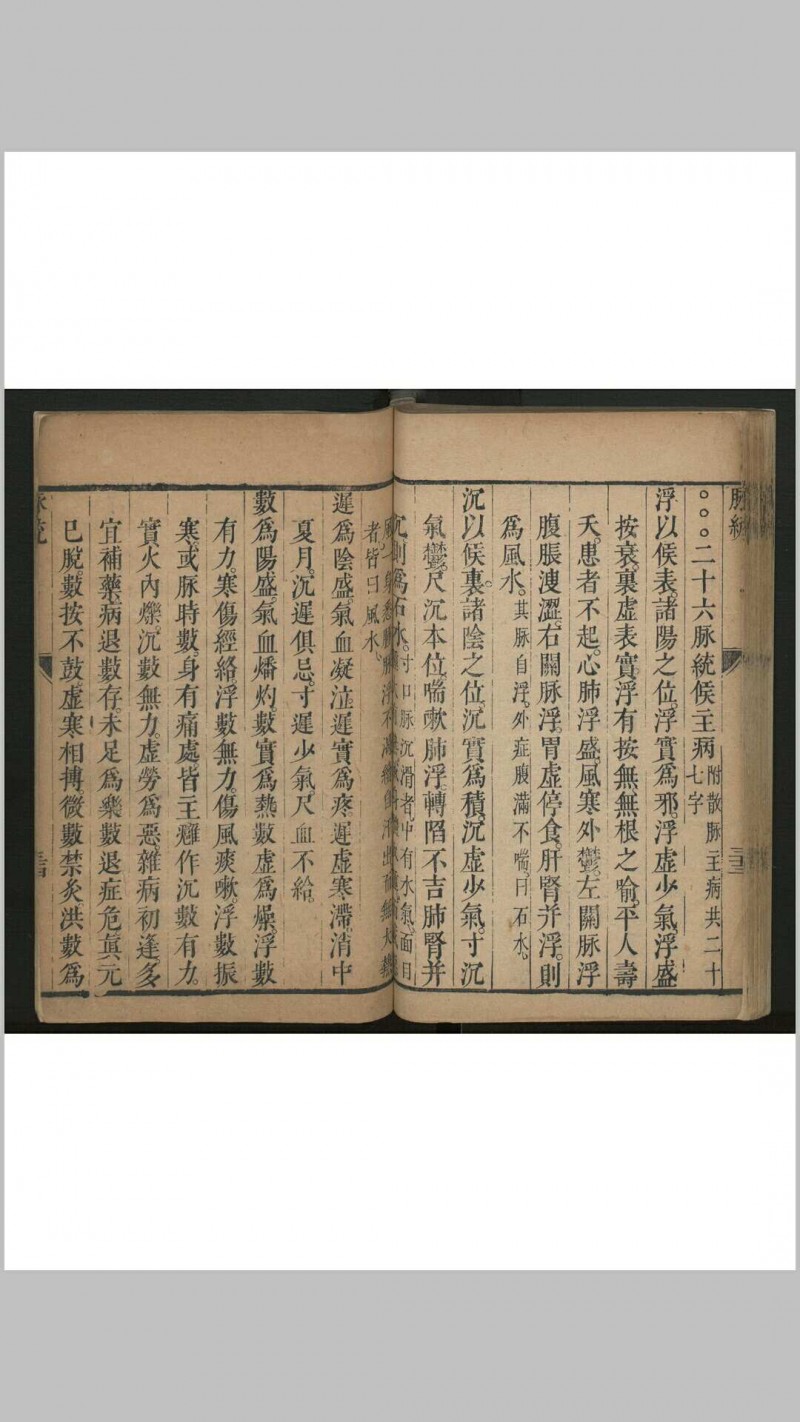 脉統
三十三
。。。二十六脉統候主病附散脉主病共二十七字
浮以候表。諸陽之位。浮實爲邪。浮虛少氣。浮盛
按衰。裏虛表實。浮有按無。無根之喻。平人壽
夭。患者不起。心肺浮盛。風寒外鬱。左關脉浮
腹脹溲澀。右關脉浮。胃虛停食。肝腎并浮。則
爲風水。其脉自浮。外症腹滿不喘。曰石水。
沉以候裏。諸陰之位。沉實爲積。沉虛少氣。寸沉
氣鬱。尺沉本位。喘嗽肺浮。轉陷不吉肺腎并
沉則爲石水。寸口脉沉滑者。中有水氣。面目
者。皆曰風水。
遲爲陰盛。氣血凝泣。遲實爲疼。遲虛寒滯。消中
夏月。沉遲俱忌。寸遲少氣。尺血不給。
數爲陽盛。氣血燔灼。數實爲熱。數虛爲燥。浮數
有力。寒傷經絡。浮數無力。傷風痰嗽。浮數振
寒。或脉時數。身有痛處。皆主癰作。沉數有力。
實火內爍。沉數無力。虛勞爲惡。雜病初逢。多
宜補藥。病退數存。未足爲樂。數退症危。眞元
已脫。數按不鼓。虛寒相搏。微數禁灸。洪數爲
脉統